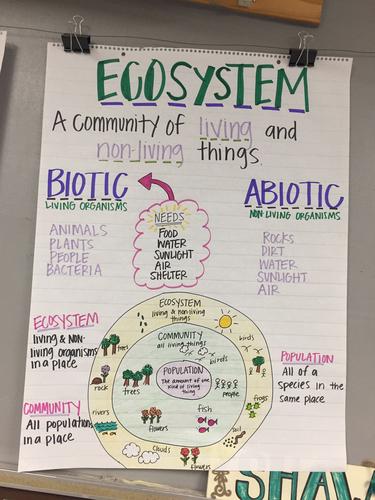 ECOSYSTEM
A community of living and
non-living things.
BIOTIC
LIVING ORGANISMS
ANIMALS
PLANTS
PEOPLE
BACTERIA
NEEDS
FOOD
WATER
SUNLIGHT
AIR
SHELTER
ABIOTIC
NON-LIVING ORGANISMS
ROCKS
DIRT
WATER
SUNLIGHT
AIR
ECOSYSTEM
living & NON-
living organisms
in a place
COMMUNITY
All populations
in a place
ECOSYSTEM
living & nonliving
things
COMMUNITY
all living things
POPULATION
The amount of one
kind of living
thing
trees
rock
rivers
clouds
flowers
soil
frogs
birds
birds
trees
people
flowers
fish
POPULATION
All of a
species in the
same place
SHA